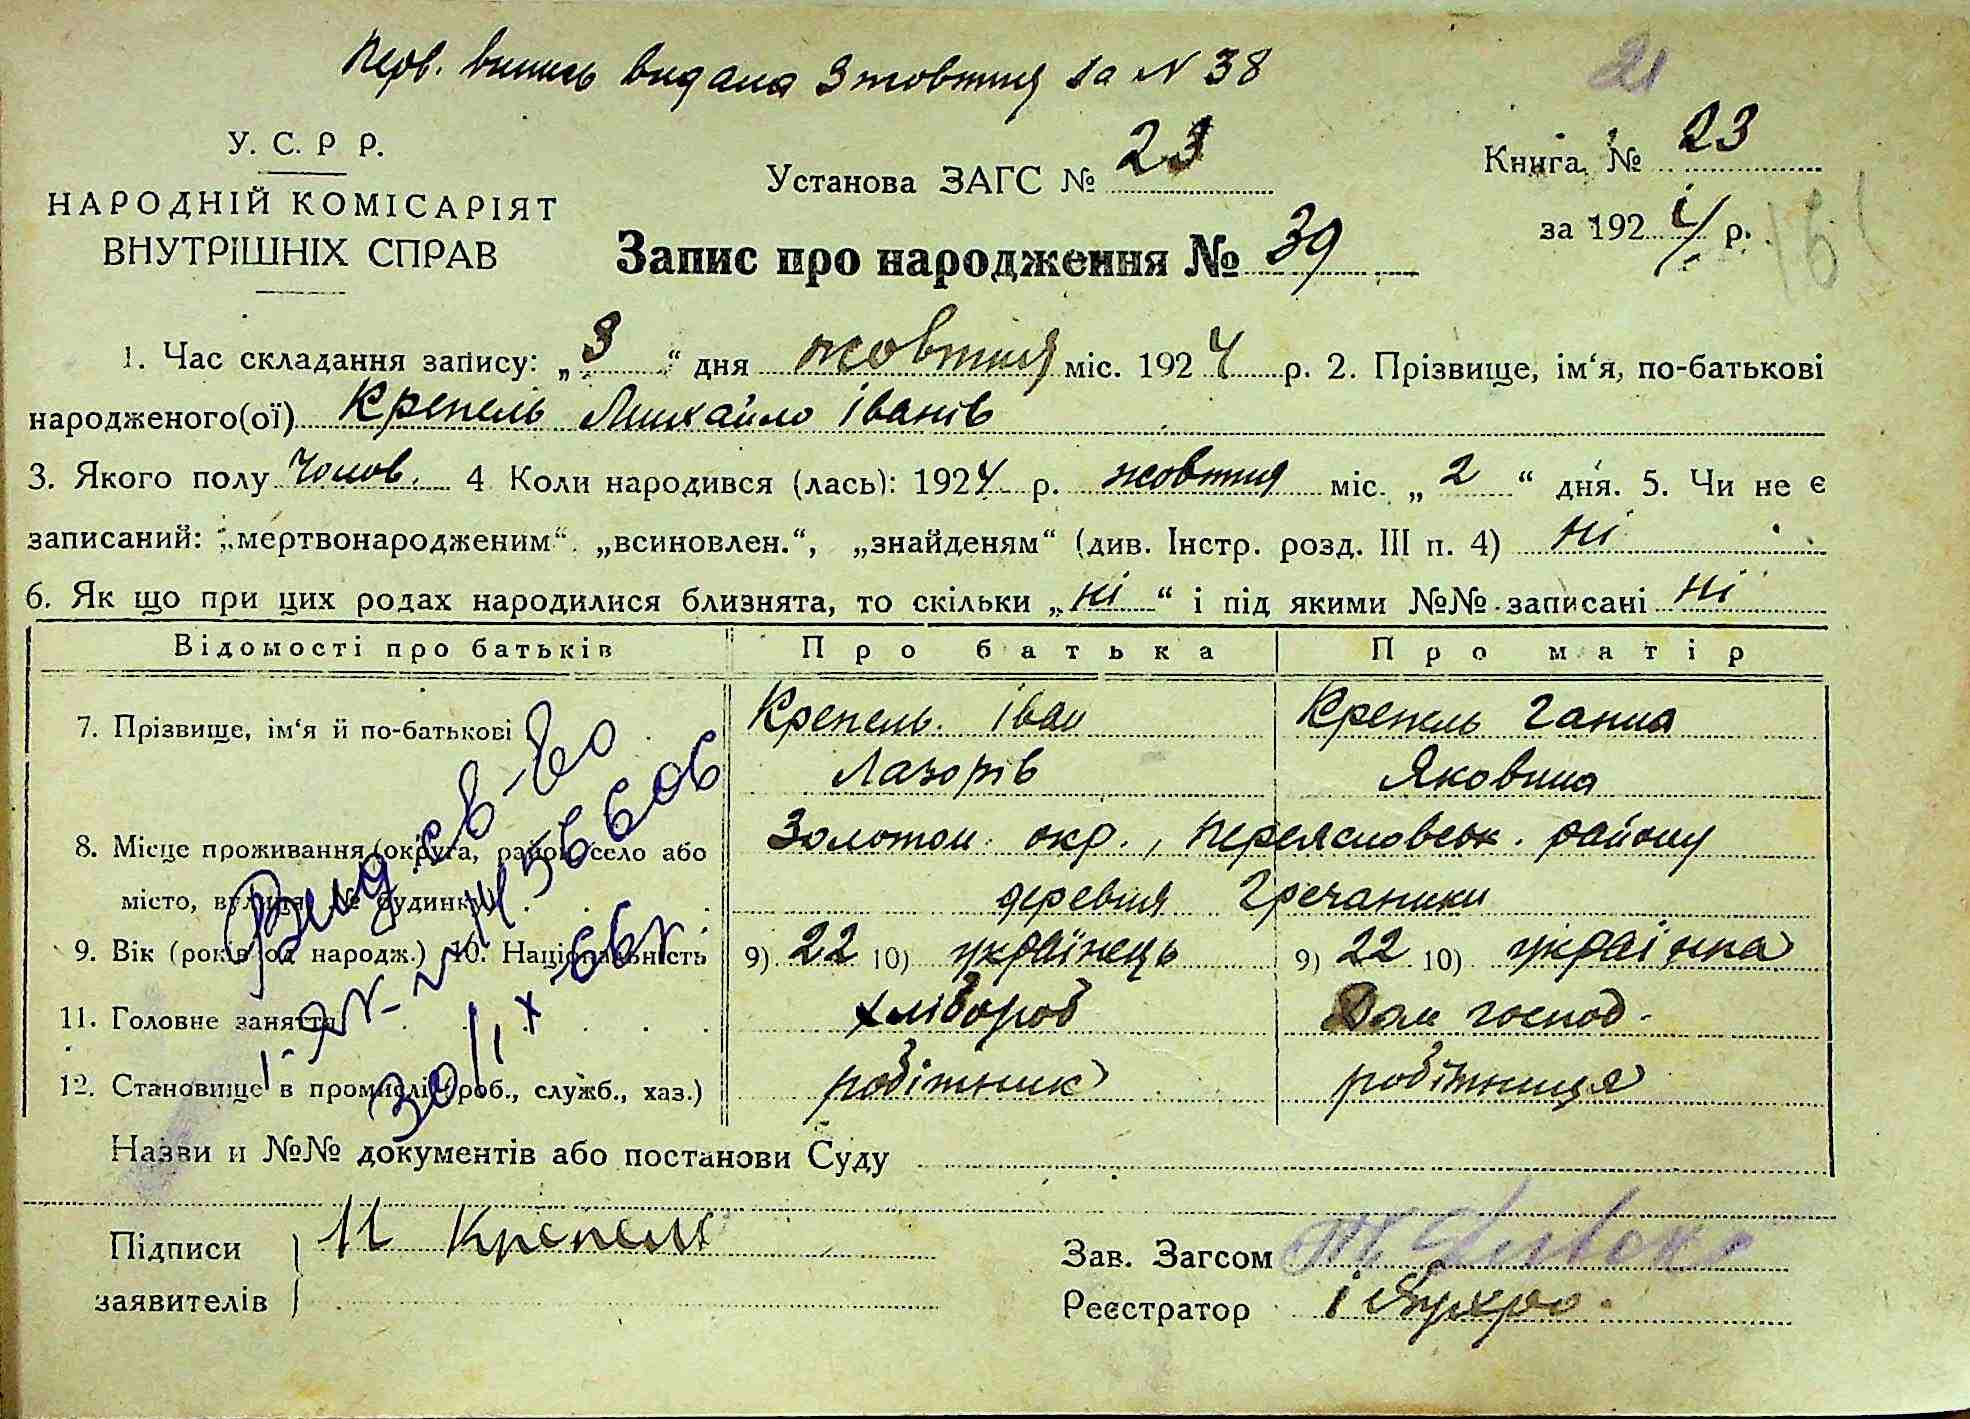 Перв. випись видана 3 жовтня за N 38
21
У. С. Р Р.
НАРОДНІЙ КОМІСАРІЯТ
ВНУТРІШНІХ СПРАВ
Установа ЗАГС № 23
Книга № 23
за 1924 р.
Запис про народження № 39
1. Час складання запису: „3“ дня жовтня міс. 1924 р. 2. Прізвище, ім‘я, по-батькові
народженого(ої) Крепель Михайло Іванів
3. Якого полу чолов. 4 Коли народився (лась): 1924 р. жовтня міс. „2“ дня. 5. Чи не є
записаний: „мертвонародженим“, „всиновлен.“, „знайденям“ (див. Інстр. розд. III п. 4) ні
6. Як що при цих родах народилися близнята, то скільки „ні“ і під якими №№ записані ні
Відомості про батьків Про батька Про матір
7. Прізвище, ім‘я й по-батькові Крепель Іван Крепель Ганна
Лазорів Яковна
8. Місце проживання (округа, район, село або Золотон. окр., Переясловськ. району
місто, вулиця, № будинку) деревня Гречаники
9. Вік (років од народж.) 10. Національність 9) 22 10) українець 9) 22 10) українка
11. Головне заняття хлібороб Дом господ.
12. Становище в промислі (роб., служб., хаз.) робітник робітниця
Вид. св-во
566606
30/IX 66г
Назви и №№ документів або постанови Суду
Підписи И Крепель
заявителів
Зав. Загсом
Реєстратор